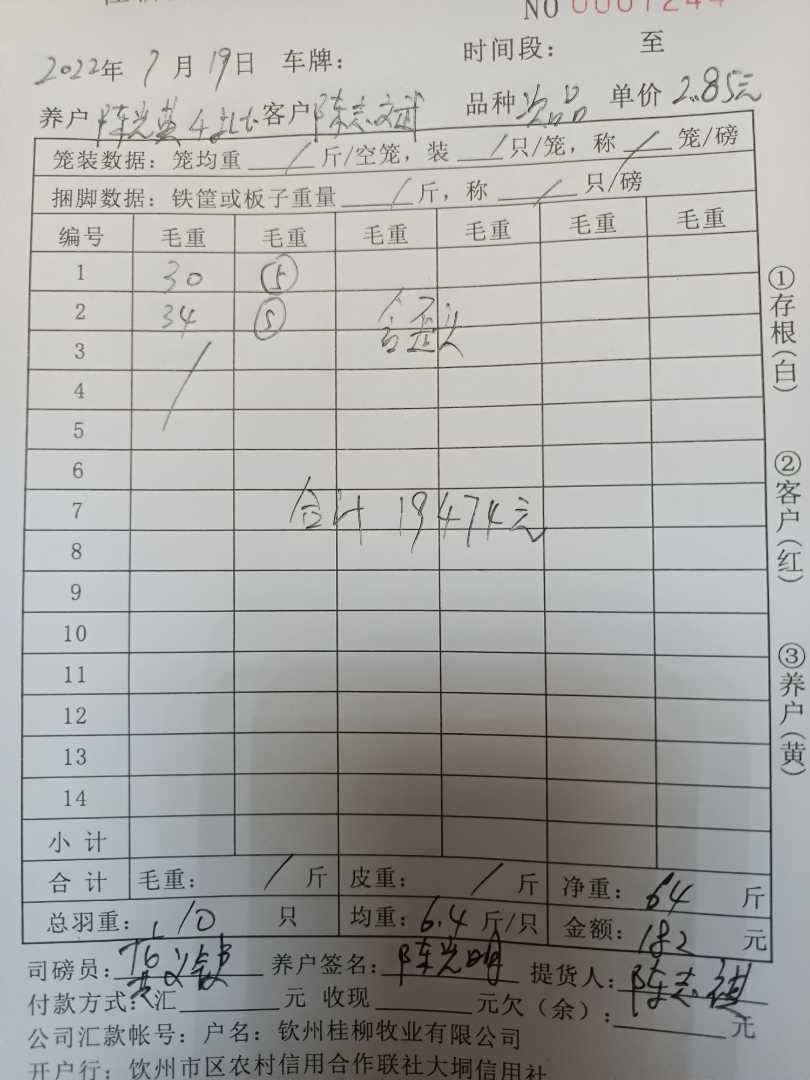 NO 0001244
2022年 7月 19日 车牌： 时间段： 至
养户 陈光黄 客户 陈志斌 品种 次品 单价 2.85元
笼装数据：笼均重 / 斤/空笼，装 / 只/笼，称 / 笼/磅
捆脚数据：铁筐或板子重量 / 斤，称 / 只/磅
编号 毛重 毛重 毛重 毛重 毛重 毛重
1 30 ⑤
2 34 ⑤ 含歪头
3 /
4
5
6
7 合计 19474元
8
9
10
11
12
13
14
小计
合计 毛重： / 斤 皮重： / 斤 净重：64 斤
总羽重：10 只 均重：6.4 斤/只 金额：182 元
司磅员： 养户签名：陈光明 提货人：陈志斌
付款方式：汇 元 收现 元欠（余）： 元
公司汇款帐号：户名：钦州桂柳牧业有限公司
开户行：钦州市区农村信用合作联社大垌信用社
①存根(白)
②客户(红)
③养户(黄)